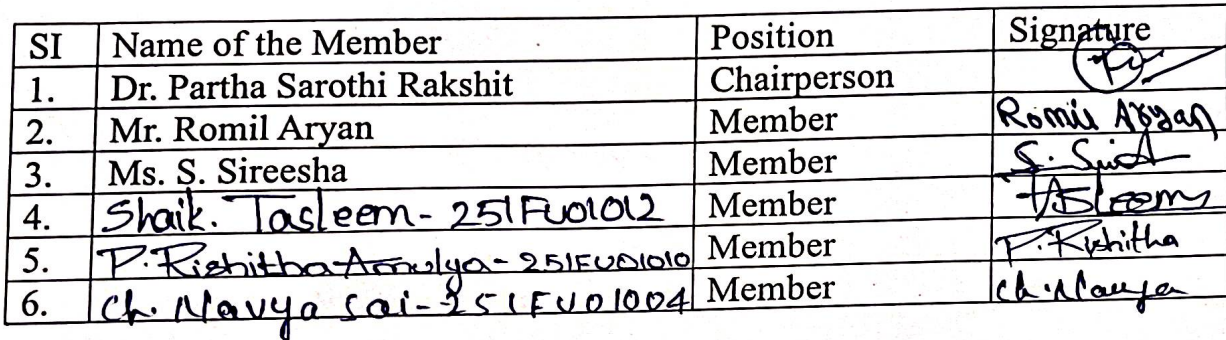 SI Name of the Member Position Signature
1. Dr. Partha Sarothi Rakshit Chairperson
2. Mr. Romil Aryan Member Romil Aryan
3. Ms. S. Sireesha Member
4. Shaik. Tasleem - 251FU01012 Member Tasleem
5. P. Rishitha Amulya - 251FU01010 Member P. Rishitha
6. Ch. Navya sai - 251FU01004 Member ch. Navya